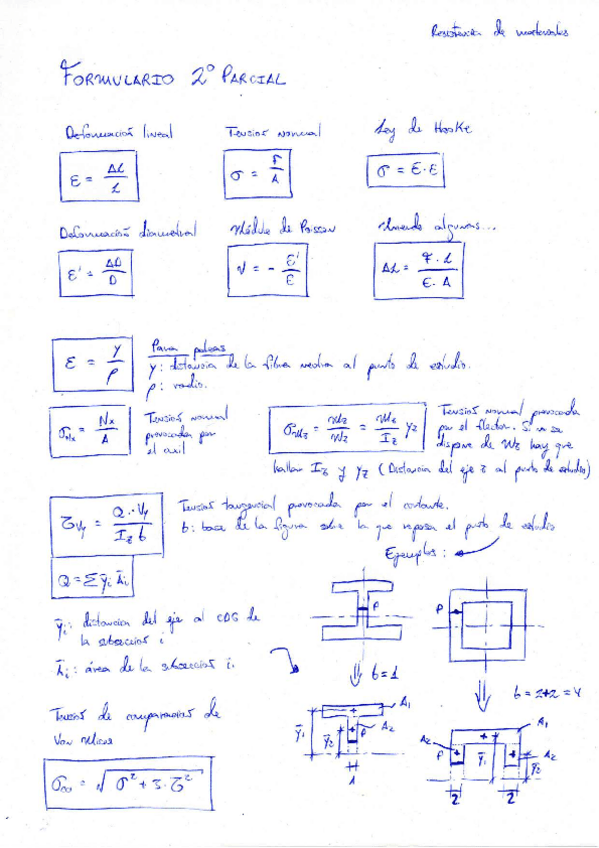 Resistencia de materiales
FORMULARIO 2º PARCIAL
Deformación lineal
Tensión normal
Ley de Hooke
ε = ΔL / L
σ = F / A
σ = E · ε
Deformación diametral
Módulo de Poisson
Uniendo algunas...
ε' = ΔD / D
ν = - ε' / ε
ΔL = F · L / E · A
ε = y / ρ
Para poleas
y: distancia de la fibra neutra al punto de estudio.
ρ: radio.
σNx = Nx / A
Tensión normal
provocada por
el axil
σMz = Mz / Wz = Mz / Iz yz
Tensión normal provocada
por el flector. Si no se
dispone de Wz hay que
hallar Iz y yz (Distancia del eje z al punto de estudio)
τVy = Q · Vy / Iz b
Tensión tangencial provocada por el cortante.
b: base de la figura sobre la que reposa el punto de estudio
Ejemplos:
Q = Σ ȳi Āi
ȳi: distancia del eje al CDG de
la subsección i
Āi: área de la subsección i.
P
P
b = 1
b = 2+2 = 4
Tensión de comparación de
Von Mises
σco = √ σ² + 3 · τ²
A1
A2
ȳ1
ȳ2
P
1
A1
A2
A2
P
ȳ1
ȳ2
2
2